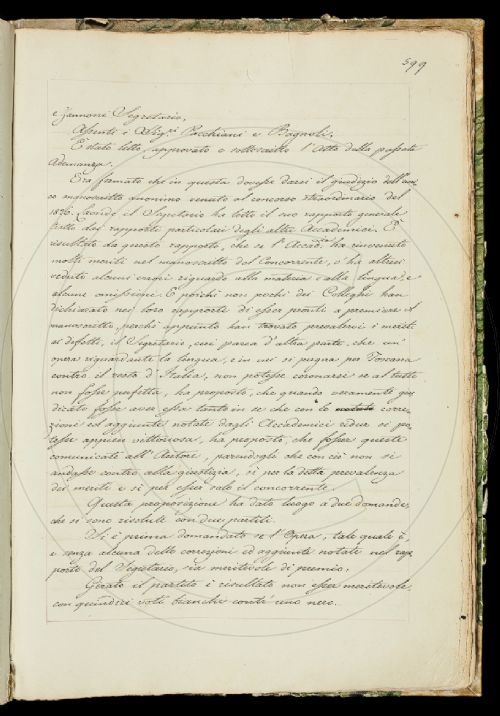 599
e Zannoni Segretario.
Assenti i Sigri Pacchiani e Bagnoli.
È stato letto, approvato e sottoscritto l'Atto della passata
Adunanza.
Era fermato che in questa dovesse darsi il giudizio dell'uni-
co manoscritto anonimo venuto al concorso straordinario del
1830. Laonde il Segretario ha letto il suo rapporto generale
sui rapporti particolari degli altri Accademici. È
risultato da questo rapporto, che se l'Accadia ha rinvenuto
molti meriti nel manoscritto del Concorrente, v'ha altresì
veduti alcuni errori riguardo alla materia e alla lingua, e
alcune omissioni. E poichè non pochi dei Colleghi han
dichiarato nei loro rapporti di esser pronti a premiare il
manoscritto, perchè appunto han trovato prevalervi i meriti
ai difetti, il Segretario, cui parea d'altra parte, che un'
opera riguardante la lingua, e in cui si pugna per Toscana
contro il resto d'Italia, non potesse coronarsi se al tutto
non fosse perfetta, ha proposto, che quando veramente giu-
dicato fosse aver essa tanto in se che con le notate corre-
zioni ed aggiunte notate dagli Accademici render si po-
tesse appien vittoriosa, ha proposto che fosser queste
comunicate all'Autore, parendogli che con ciò non si
andasse contro alla giustizia, sì per la detta prevalenza
dei meriti e sì per esser solo il concorrente.
Questa proposizione ha dato luogo a due domande,
che si sono risolute con due partiti.
Si è prima domandato se l'Opera, tale quale è,
e senza alcuna delle correzioni ed aggiunte notate nel rap-
porto del Segretario, sia meritevole di premio.
Girato il partito è risultato non esser meritevole
con quindici voti bianchi contr'uno nero.